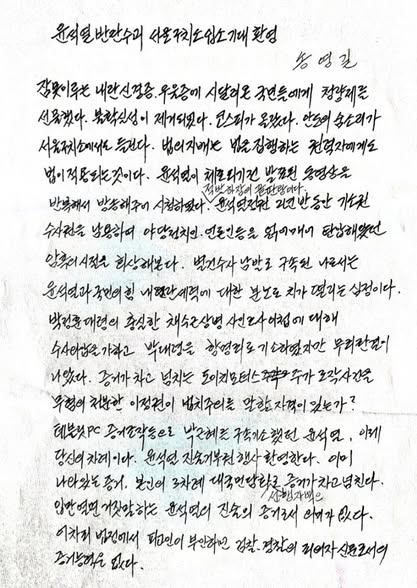 윤석열 반란수괴 서울구치소 입소 기대 환영
송영길
잠 못 이루는 내란 신경증. 우울증에 시달리던 국민들에게 청량제를
선물했다. 불확실성이 제거되었다. 코스피가 올랐다. 안도의 숨소리가
서울구치소에서도 들린다. 범죄자에는 법을 집행하는 권력자에게도
법이 적용되는 것이다. 윤석열이 체포되기전 발표된 동영상을
적반하장의 끝판왕이다.
반복해서 방송해주어 시청하였다. 윤석열정권 2년 반 동안 기소권
수사권을 남용하여 야당정치인. 언론인등을 탄압해왔던
암흑의 시절을 회상해본다. 별건수사 남발로 구속된 나로서는
윤석열과 국민의힘 내란세력에 대한 분노로 치가 떨리는 심정이다.
박정훈대령의 충실한 채수근상병 사건조사 이첩에 대해
수사외압을 가하고 박대령을 항명죄로 기소하였지만 무죄판결이
나왔다. 증거가 차고 넘치는 도이치모터스 주가조작사건을
무혐의 처분한 이정권이 법치주의를 말할 자격이 있는가?
테블릿PC 증거조작등으로 박근혜를 구속기소했던 윤석열, 이제
당신의 차례이다. 윤석열 진술거부권 행사 환영한다. 이미
나와있는 증거, 본인의 3차례 대국민담화로 증거가 차고 넘친다.
입만열면 거짓말하는 윤석열의 진술의 증거로서 의미가 없다.
어차피 법정에서 피고인이 부인하면 검찰. 경찰의 피의자 신문조서의
증거능력은 없다.